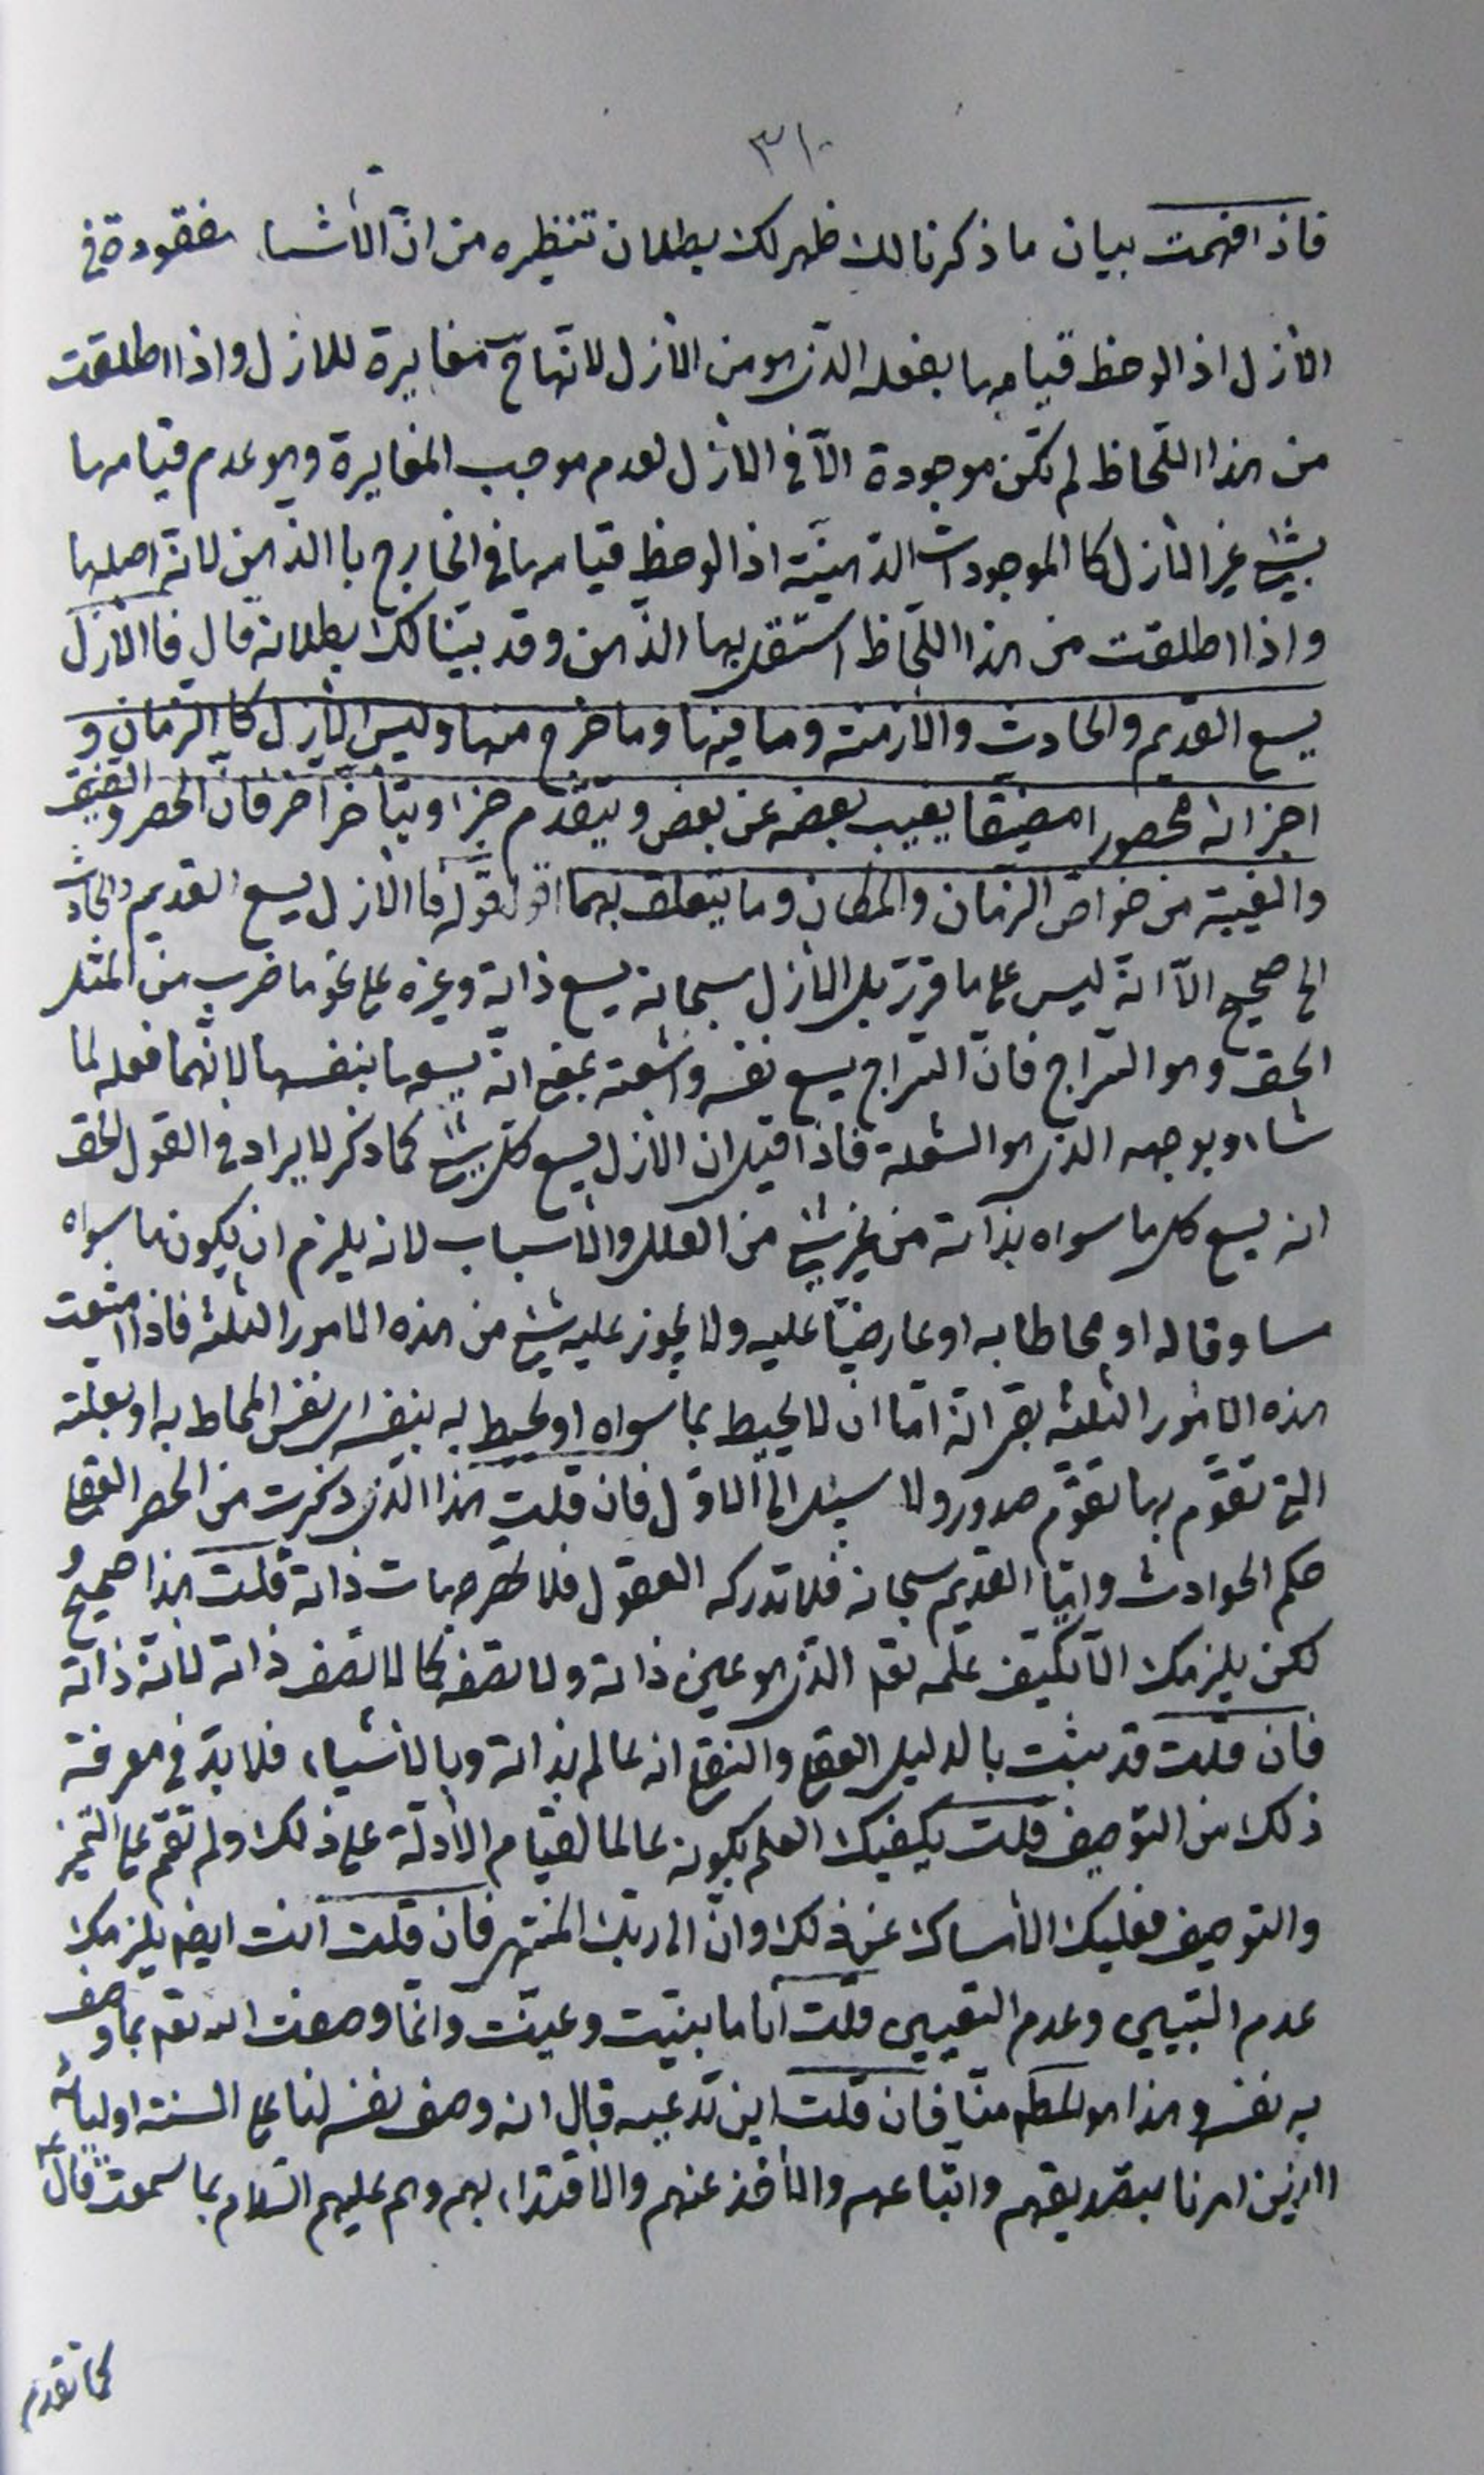 ٣١٠
فاذا فهمت بيان ما ذكرنا لك ظهر لك بطلان تنظيره من انّ الأشياء مفقودة في
الأزل اذا لوحظ قيامها بفعله الذي هو من الأزل لانّها ح مغايرة للازل واذا اطلقت
من هذا اللّحاظ لم تكن موجودة الّا في الأزل لعدم موجب المغايرة وهو عدم قيامها
بشئ غير الأزل كالموجودات الذهنيّة اذا لوحظ قيامها في الخارج باالذهن لانّه اصلها
واذا اطلقت من هذا اللّحاظ استقل بها الذّهن وقد بيّنا لك بطلانه قال فاالأزل
يسع القديم والحادث والازمنة وما فيها وما خرج منها وليس الأزل كالزمان و
اجزائه محصورا مضيقا يغيب بعضه عن بعض ويتقدّم جزء ويتأخّر آخر فانّ الحصر والضيق
والغيبة من خواصّ الزمان والمكان وما يتعلّق بهما اقول قوله فاالأزل يسع القديم والحادث
الخ صحيح الّا انّه ليس على ما قرّر بل الأزل سبحانه يسع ذاته وغيره على نحو ما ضرب من المثل
الحق وهو السّراج فانّ السّراج يسع نفسه واشعته بمعنى انّه يسعها بنفسها لانّها فعله لما
شاء وبوجهه الذي هو الشعلة فاذا قيل ان الأزل يسع كلّ شئ كما ذكر لا يراد في القول الحق
انه يسع كل ما سواه بذاته من غير شئ من العلل والأسباب لانه يلزم ان يكون ما سواه
مساوقا له او محاطا به او عارضيّا عليه ولا يجوز عليه شئ من هذه الامور الثلثة فاذا امتنعت
هذه الأمور الثلثة بقي انّه امّا ان لا يحيط بما سواه او يحيط به بنفسه اي نفس المحاط به او بعلّته
التي تقوّم بها تقوّم صدور ولا سبيل الى الأوّل فان قلت هذا الذي ذكرت من الحصر العقلي
حكم الحوادث وامّا القديم سبحانه فلا تدركه العقول فلا تحصر جهات ذاته قلت هذا صحيح و
لكن يلزمك الّا تكيّف علمه تعه الذي هو عين ذاته ولا تصفه كما لا تصف ذاته لانّه ذاته
فان قلت قد ثبت بالدليل العقلي والنقلي انه عالم بذاته وبالأشياء فلا بدّ في معرفة
ذلك من التوصيف قلت يكفيك العلم بكونه عالما لقيام الأدلّة على ذلك ولم تقم على التميز
والتوصيف فعليك الأمساك عن ذلك وانّ الى ربّك المنتهى فان قلت انت ايضا يلزمك
عدم التبيين وعدم التعيين قلت انا ما بيّنت وعيّنت وانّما وصفت الله تعه بما وصف
به نفسه وهذا هو المطلوب منّا فان قلت اين تدّعيه قبال انه وصف نفسه لنا على السنة اوليائه
الذين امرنا بتصديقهم واتّباعهم والأخذ عنهم والاقتداء بهم وهم عليهم السّلام بما سمعت قال
كما تقدم